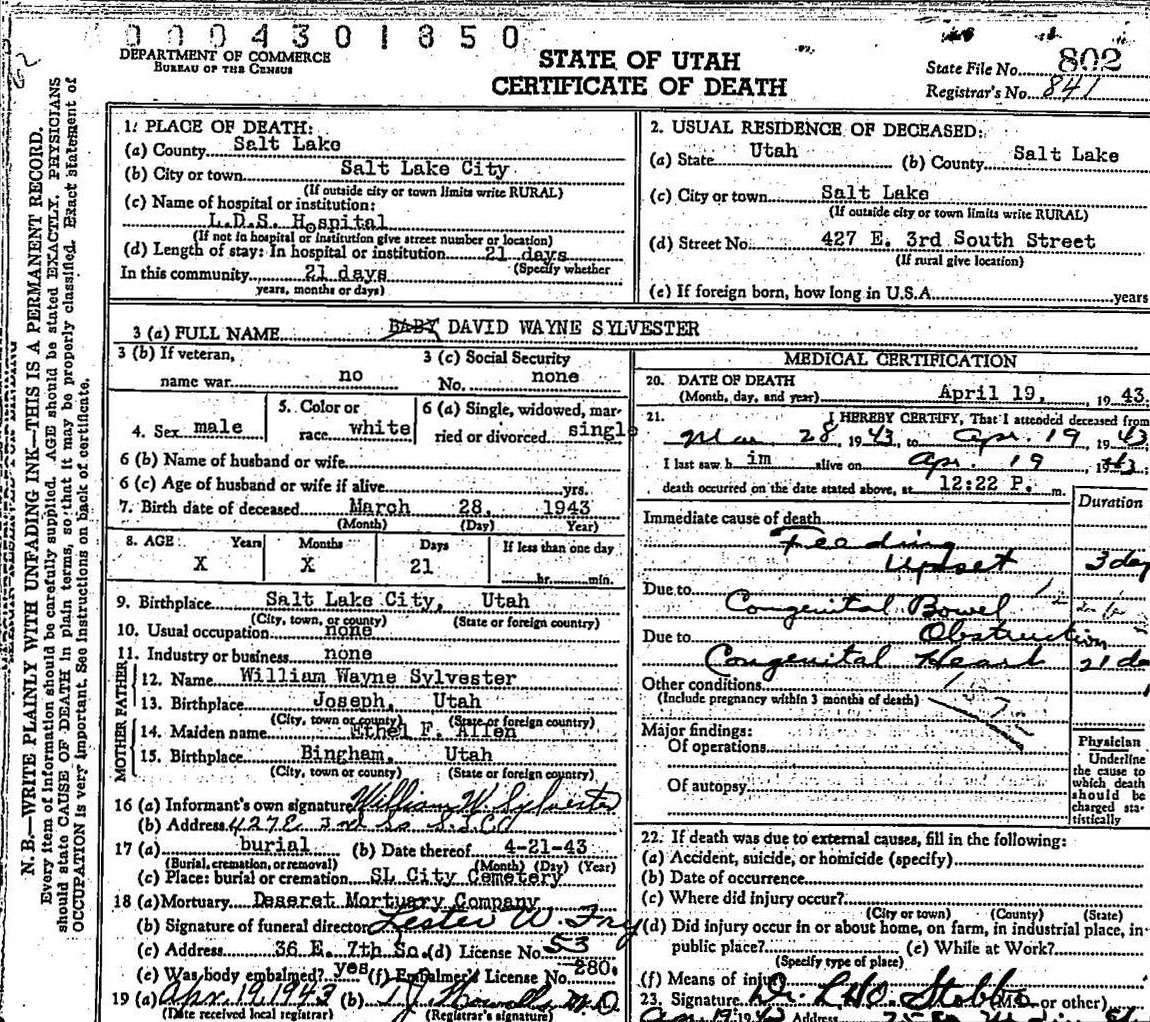 0 0 0 4 3 0 1 8 5 0
DEPARTMENT OF COMMERCE
BUREAU OF THE CENSUS
STATE OF UTAH
CERTIFICATE OF DEATH
State File No. 802
Registrar's No. 841
N. B.—WRITE PLAINLY WITH UNFADING INK—THIS IS A PERMANENT RECORD.
Every item of information should be carefully supplied. AGE should be stated EXACTLY. PHYSICIANS
should state CAUSE OF DEATH in plain terms, so that it may be properly classified. Exact statement of
OCCUPATION is very important. See instructions on back of certificate.
1. PLACE OF DEATH:
(a) County Salt Lake
(b) City or town Salt Lake City
(If outside city or town limits write RURAL)
(c) Name of hospital or institution:
L.D.S. Hospital
(If not in hospital or institution give street number or location)
(d) Length of stay: In hospital or institution 21 days
(Specify whether
In this community 21 days
years, months or days)
2. USUAL RESIDENCE OF DECEASED:
(a) State Utah (b) County Salt Lake
(c) City or town Salt Lake
(If outside city or town limits write RURAL)
(d) Street No. 427 E. 3rd South Street
(If rural give location)
(e) If foreign born, how long in U.S.A. years
3 (a) FULL NAME BABY DAVID WAYNE SYLVESTER
3 (b) If veteran, 3 (c) Social Security
name war no No. none
4. Sex male 5. Color or race white 6 (a) Single, widowed, married or divorced single
6 (b) Name of husband or wife
6 (c) Age of husband or wife if alive yrs.
7. Birth date of deceased March 28, 1943
(Month) (Day) Year)
8. AGE Years Months Days If less than one day
X X 21 hr. min.
9. Birthplace Salt Lake City, Utah
(City, town, or county) (State or foreign country)
10. Usual occupation none
11. Industry or business none
FATHER
12. Name William Wayne Sylvester
13. Birthplace Joseph, Utah
(City, town or county) (State or foreign country)
MOTHER
14. Maiden name Ethel F. Allen
15. Birthplace Bingham, Utah
(City, town or county) (State or foreign country)
16 (a) Informant's own signature William W. Sylvester
(b) Address 427 E 3rd So S.L.C
17 (a) burial (b) Date thereof 4-21-43
(Burial, cremation, or removal) (Month) (Day) (Year)
(c) Place: burial or cremation SL City Cemetery
18 (a) Mortuary Deseret Mortuary Company
(b) Signature of funeral director Lester W. Fry
(c) Address 36 E. 7th So. (d) License No. 53
(e) Was body embalmed? yes (f) Embalmer's License No. 280.
19 (a) Apr. 19, 1943 (b) M.D
(Date received local registrar) (Registrar's signature)
MEDICAL CERTIFICATION
20. DATE OF DEATH
(Month, day, and year) April 19, 1943.
21. I HEREBY CERTIFY, That I attended deceased from
Mar. 28, 1943, to Apr. 19 1943
I last saw h im alive on Apr. 19, 1943.
death occurred on the date stated above, at 12:22 P. m.
Duration
Immediate cause of death
Feeding
Upset 3 day
Due to
Congenital Bowel
Obstruction
Due to
Congenital Heart 21 da
Other conditions
(Include pregnancy within 3 months of death)
Major findings:
Of operations
Of autopsy
Physician
Underline
the cause to
which death
should be
charged sta-
tistically
22. If death was due to external causes, fill in the following:
(a) Accident, suicide, or homicide (specify)
(b) Date of occurrence
(c) Where did injury occur?
(City or town) (County) (State)
(d) Did injury occur in or about home, on farm, in industrial place, in
public place? (e) While at Work?
(Specify type of place)
(f) Means of injury
23. Signature Dr. (M.D. or other)
Address